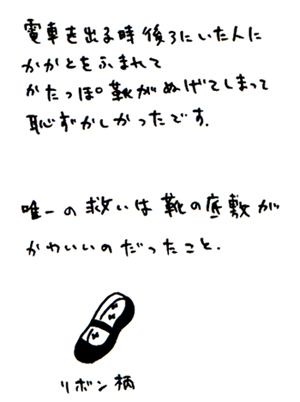 電車を出る時後ろにいた人に
かかとをふまれて
かたっぽ靴がぬげてしまって
恥ずかしかったです.
唯一の救いは靴の底敷が
かわいいのだったこと.
リボン柄